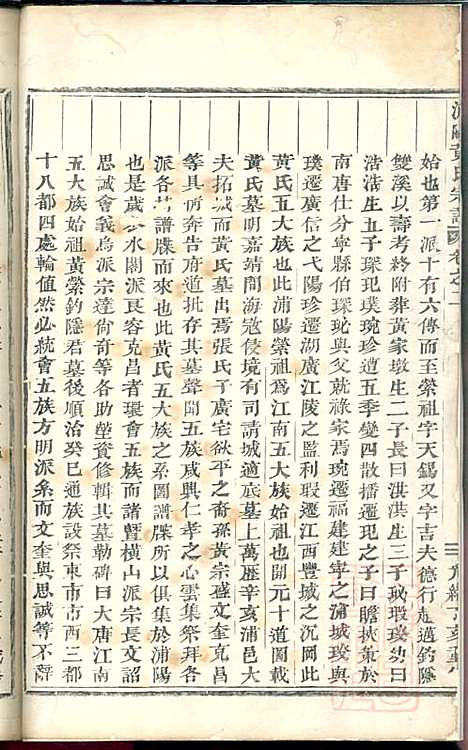 始也第一派十有六傳而至縈祖字天錫又字吉夫德行超邁釣隱
雙溪以壽考終附葬黃家墩生二子長曰淇淇生三子玧瑕琰幼曰
浩浩生五子琛玘璞琬珍遭五季變四散播遷玘之子曰瞻挾策於
南唐仕分寧縣伯琛玘與父就祿家焉琬遷福建建寧之浦城琰與
璞遷廣信之弋陽珍遷湖廣江陵之監利瑕遷江西豐城之沉岡此
黃氏五大族也此浦陽縈祖爲江南五大族始祖也開元十道圖載
黃氏墓明嘉靖間海寇侵境有司請城適底墓上萬歷辛亥浦邑大
夫拓城而黃氏墓出焉張氏子廣宅欲平之裔孫黃宗盛文奎克昌
等具俩奔告府道批存其墓聲聞五族咸興仁孝之心雲集祭拜各
派各共譜牒而來也此黃氏五大族之系圖譜牒所以俱集於浦陽
也是歲公水閣派艮容克昌者環會五族而諸暨橫山派宗長文詔
思誠會義烏派宗達尙奇等各助塋資修輯其墓勒碑曰大唐江南
五大族始祖黃縈釣隱君墓後順治癸巳通族設祭東市南市西三都
十八都四處輪值然必統會五族方明派系而文奎與思誠等不辭
浦陽黃氏宗譜 卷之一